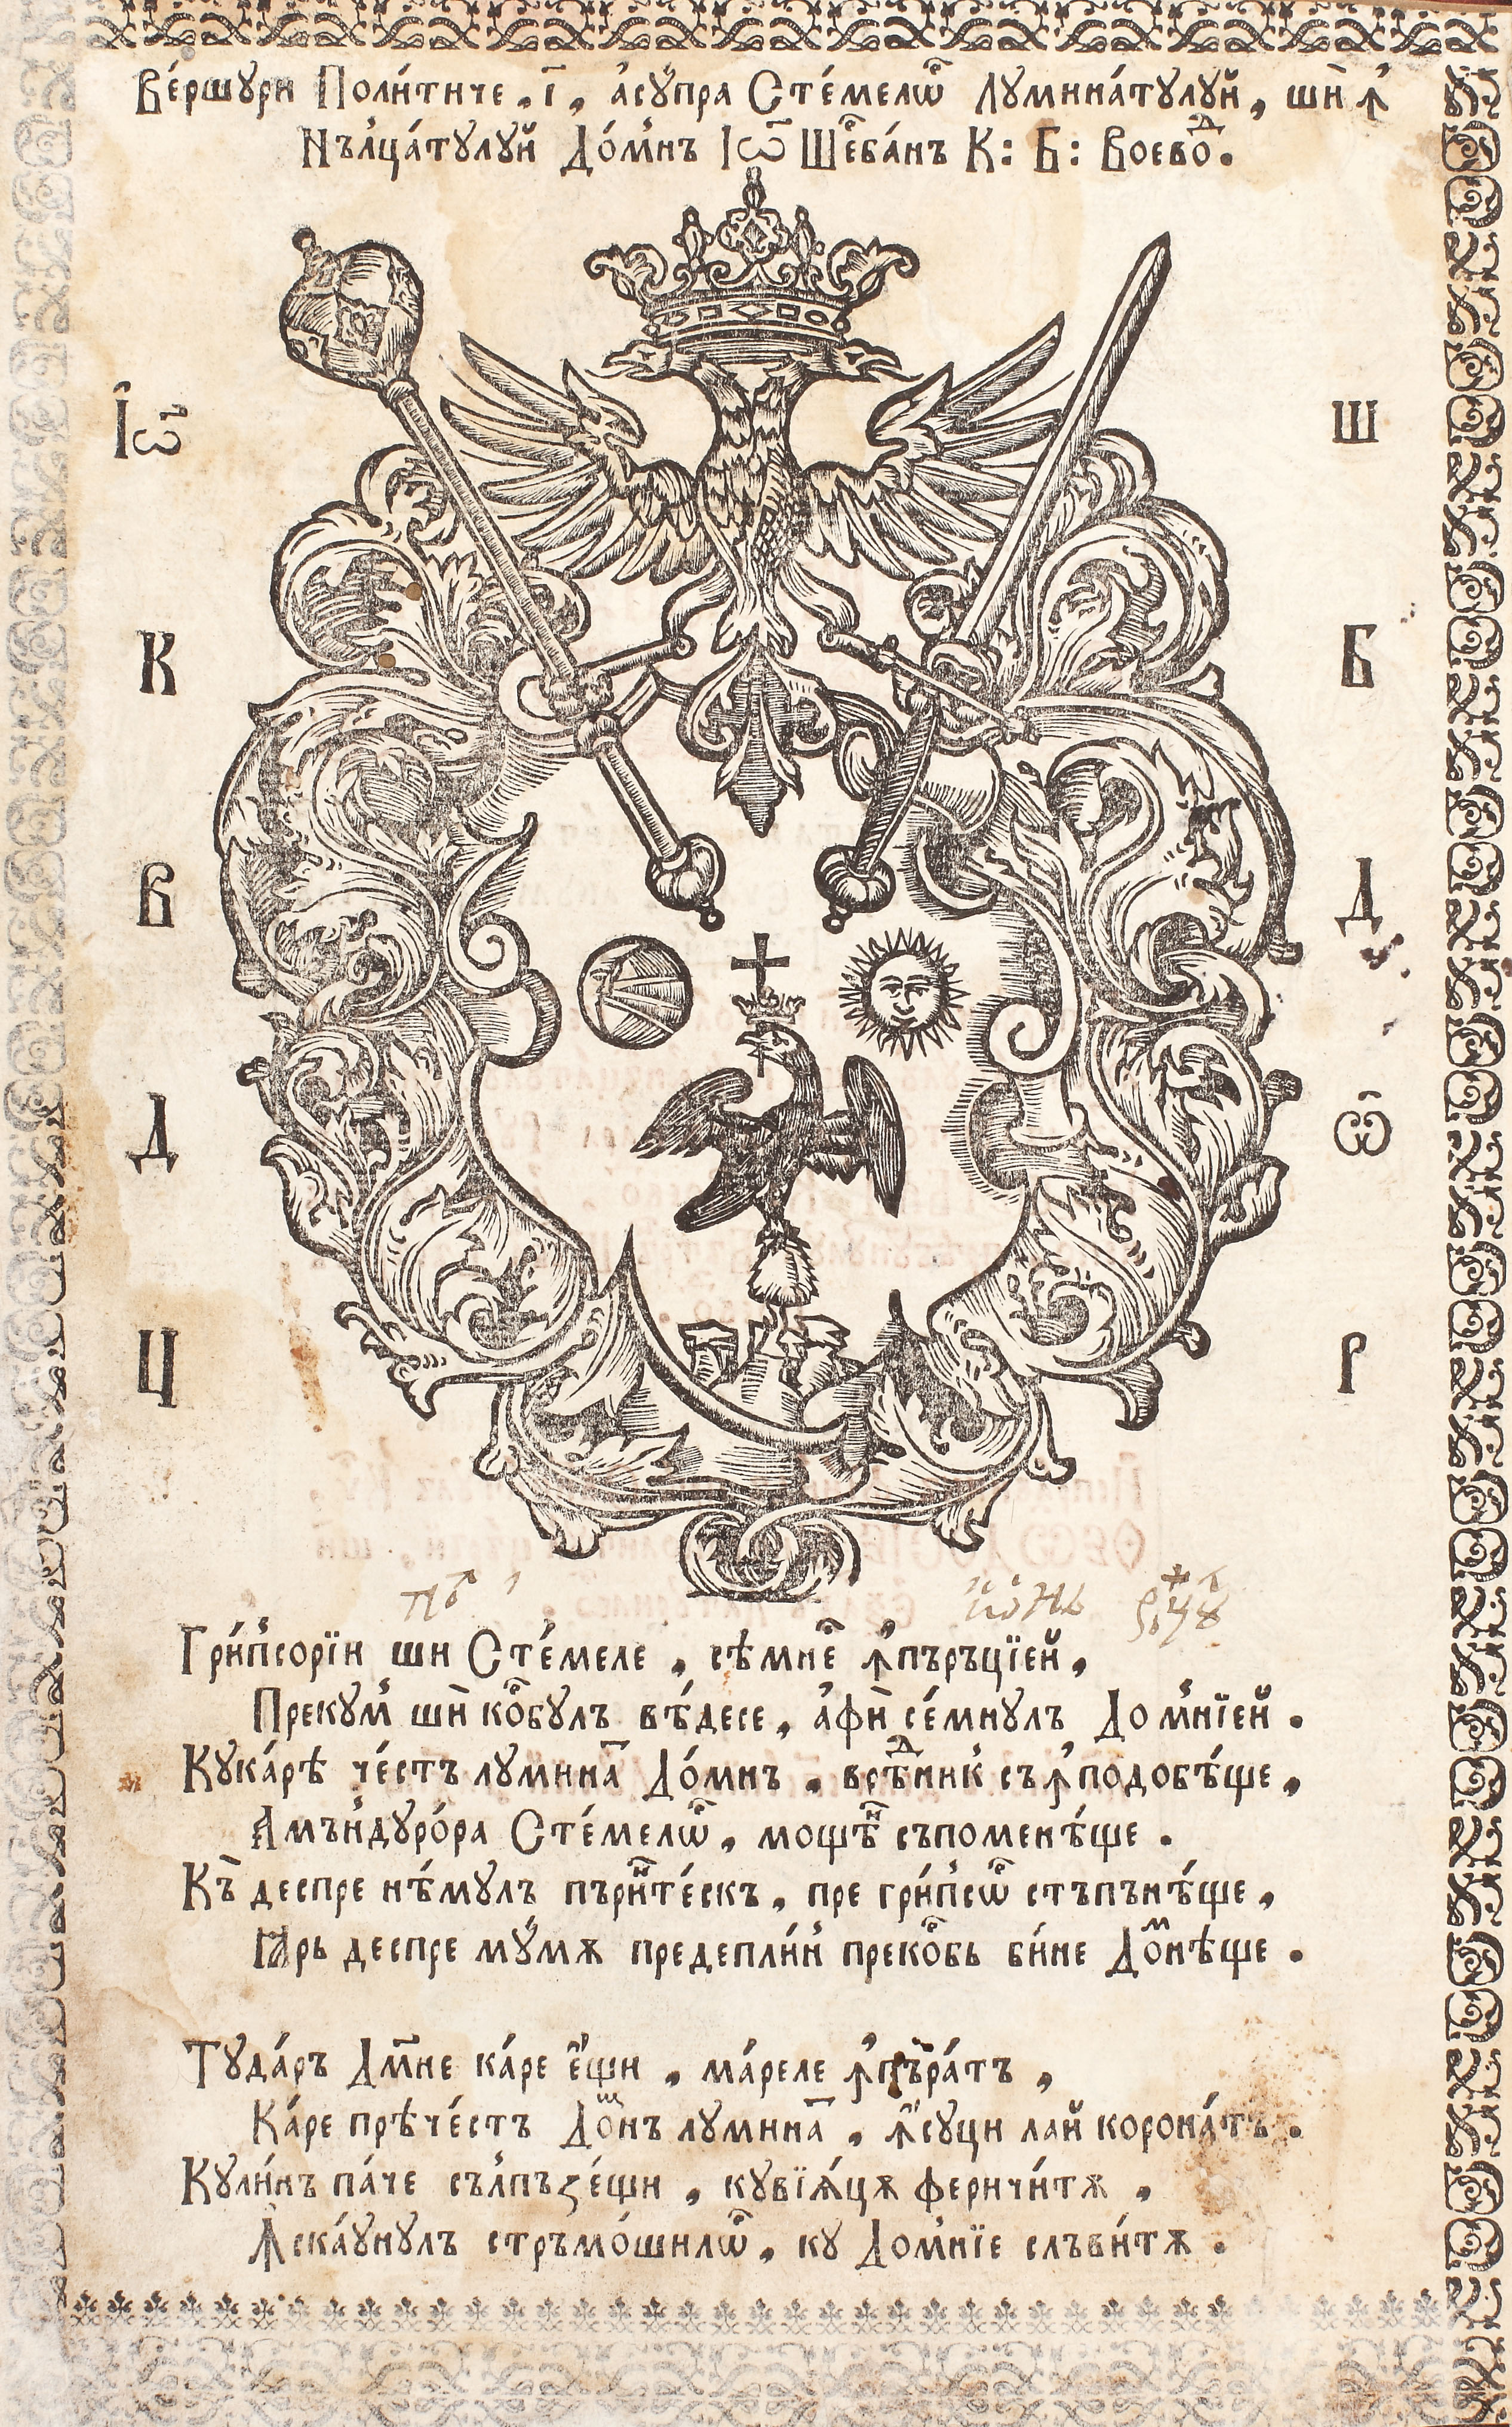 Ве́ршꙋри Поли́тиче, і҃, а҆сꙋ́пра Сте́мелѡⷬ҇ Лꙋмина́тꙋлꙋй, шѝ ꙟ҆
Нъ́лца́тꙋлꙋй До́мнъ Іѡ҃ Шеⷬ҇ба́нъ К: Б: Воевоⷣ.
Іѡ҃ Ш
К Б
В Д
Д ѿ
Ц Г
Гри́псорїи ши Сте́меле, сѣмнеⷬ҇ ꙟ҆пъръцїей,
Прекꙋм шѝ коⷬ҇бꙋлъ вѣ́десе, а҆фѝ се́мнꙋлъ До мнїей.
Кꙋка́рѣ че́стъ лꙋмина҃ До́мнъ, вреⷣникъ съꙟ҆подобѣ́ще,
А҆мъндꙋро́ра Сте́мелѡⷬ҇, мощѣⷩ҇ съпоменѣ́ще.
Къ̀ деспре нѣ́мꙋлъ пъриⷩ҇те́скъ, пре гри́псѡⷬ҇ стъпънѣ́ще,
Ꙗрь деспре мꙋ́мѫ предепли́н прекоⷬ҇бь би́не Доⷨнѣ́ще.
Тꙋда́ръ Дм҃не ка́ре є҆́щи, ма́реле ꙟ҆пъ҃ра́тъ,
Ка́ре прѣче́стъ Доⷨнъ лꙋмина҃, ꙟ҆сꙋци лай корона́тъ.
Кꙋли́нъ па́че сълпъзе́щи, кꙋвїѧ́цѫ феричи́тѫ,
Ꙟ҆ска́ꙋнꙋлъ стръмо́шилѡⷬ҇, кꙋ Домнїе слъви́тѫ.